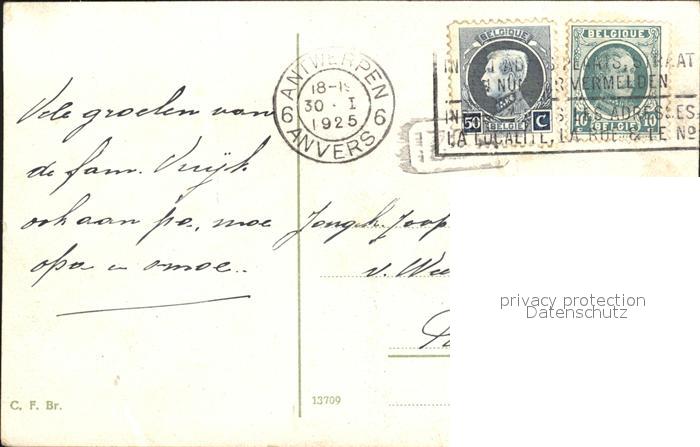 Vele groeten van
de fam. Vuijk
ook aan pa, moe
opa en omoe..
C. F. Br.
ANTWERPEN
18-19
30 · I
1925
6 6
ANVERS
BELGIQUE
50 C
BELGIË
BELGIQUE
10 10
BELGIË
IN ADRES PLAATS, STRAAT
NUMMER VERMELDEN
ADRESSES
LA LOCALITE, LA RUE & LE No
Jongh. Joop
v. Wee
13709
privacy protection
Datenschutz